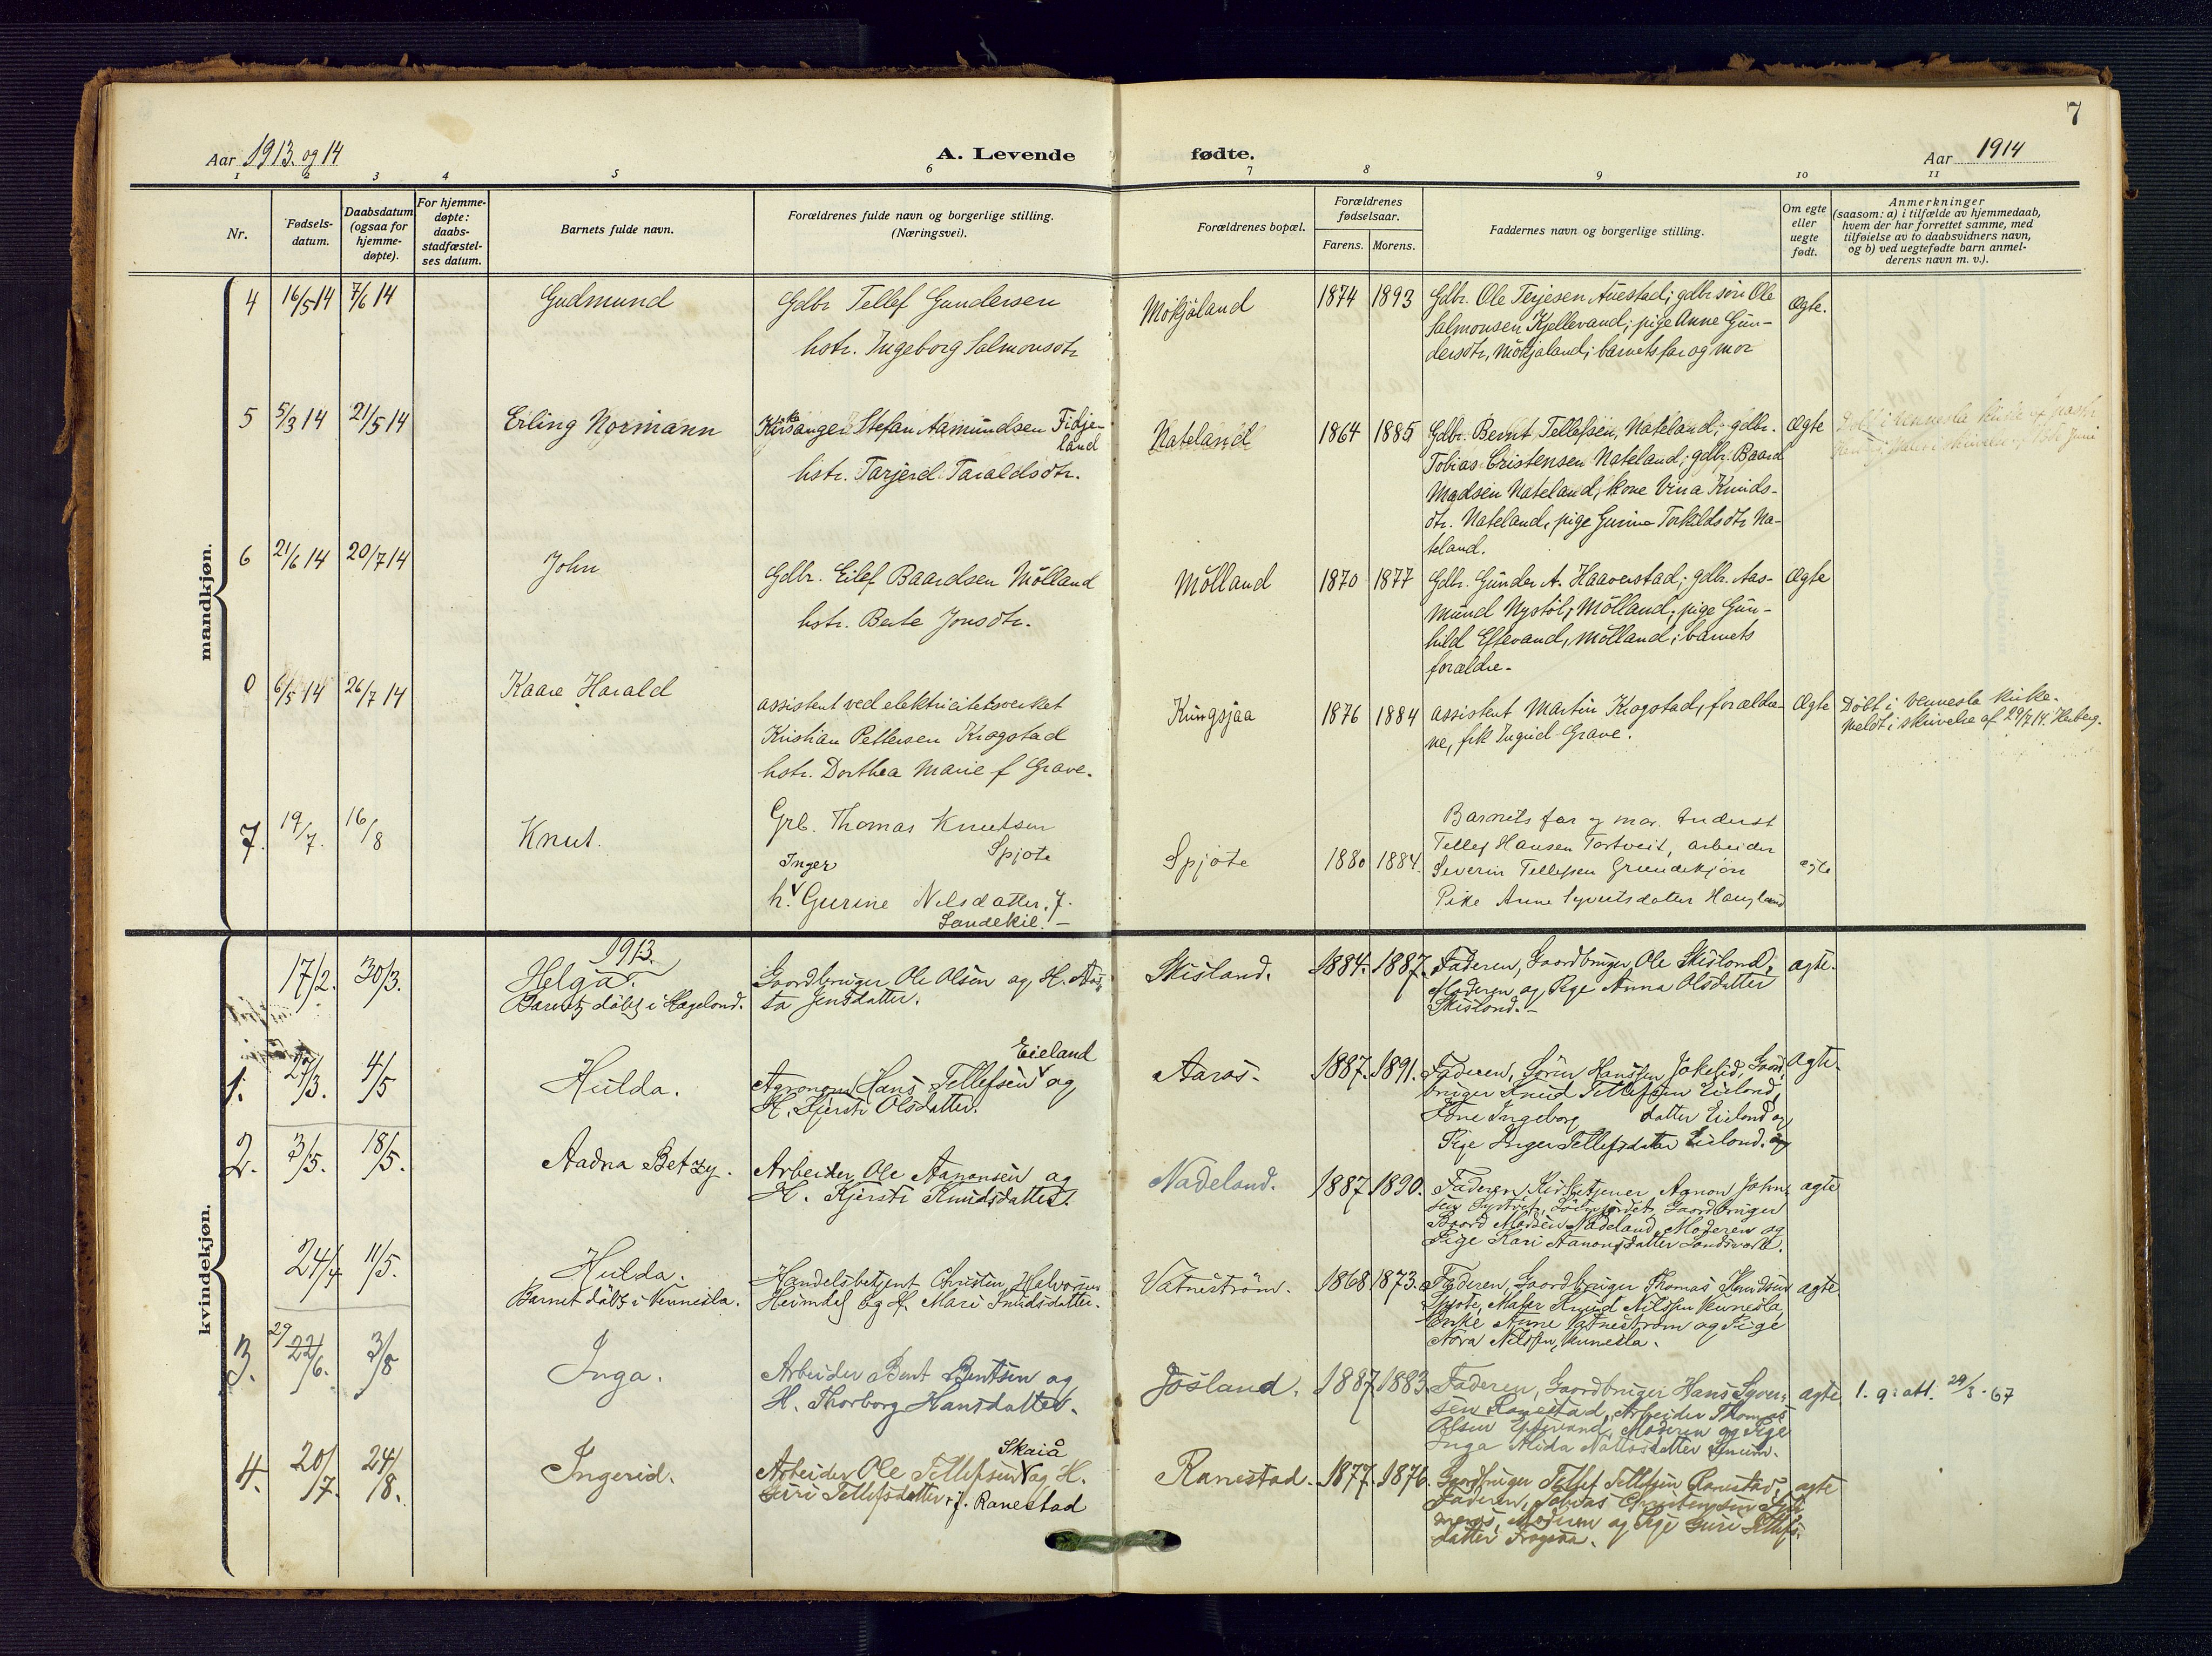 7
Aar 1913. og 14
A. Levende
fødte.
Aar 1914
1 2 3 4 5 6 7 8 9 10 11
Nr.
Fødsels-
datum.
Daabsdatum
(ogsaa for
hjemme-
døpte).
For hjemme-
døpte:
daabs-
stadfæstel-
ses datum.
Barnets fulde navn.
Forældrenes fulde navn og borgerlige stilling.
(Næringsvei).
Forældrenes bopæl.
Forældrenes
fødselsaar.
Farens. Morens.
Faddernes navn og borgerlige stilling.
Om egte
eller
uegte
født.
Anmerkninger
(saasom: a) i tilfælde av hjemmedaab,
hvem der har forrettet samme, med
tilføielse av to daabsvidners navn,
og b) ved uegtefødte barn anmel-
derens navn m. v.).
mandkjøn.
4 16/5 14 7/6 14 Gudmund
Gdbr Tellef Gundersen
hstr. Ingeborg Salmonsdtr
Mökjåland
1874 1893
Gdbr. Ole Terjesen Auestad; gdbr søn Ole
Salmonsen Kjellevand; pige Anne Gun-
dersdtr, Mökjaland; barnets far og mor
Ægte.
5 5/3 14 21/5 14 Erling Normann
Kirkesanger Stefan Aamundsen Fidje-
land
hstr. Tarjerd Taraldsdtr.
Nateland
1864 1885
Gdbr. Bernt Tellefsen, Nateland; gdbr.
Tobias Cristensen Nateland; gdbr. Baard
Madsen Nateland; kone Vina Knuds-
dtr. Nateland, pige Gurine Torkildsdtr Na-
teland.
Ægte
Döbt i Vennesla kirke af
6 21/6 14 20/7 14 John
Gdbr. Eilef Baardsen Mölland
hstr. Berte Jonsdtr.
Mölland
1870 1877
Gdbr. Gunder A. Haaverstad; gdbr. Aas-
mund Nystöl, Mölland; pige Gun-
hild Eftevand, Mölland; barnets
forældre.
Ægte
0 6/5 14 26/7 14 Kaare Harald
assistent ved elektricitetsverket
Kristian Pettersen Krogstad
hstr. Dorthea Marie f Grave.
Kringsjaa
1876 1884
assistent Martin Krogstad, forældre-
ne, frk Ingrid Grave.
Ægte
Döbt i Vennesla kirke.
Meldt i skrivelse af 29/7 14.
7. 19/7. 16/8 Knut.
Grb. Thomas Knutsen
Spjote
Inger
h. Gurine Nilsdatter, f.
Sandekil. -
Spjote
1880 1884.
Barnets far og mor. Inderst
Tellef Hansen Tortveit, arbeider
Severin Tellefsen Grundekjön
Pike Anne Syvertsdatter Haugland
egte
kvindekjøn.
1913.
17/2. 30/3. Helga.
Barnet döbt i Hægeland.
Gaardbruger Ole Olsen og H. Aas-
ta Jensdatter.
Skisland.
1884. 1887.
Faderen, Gaardbruger Ole Skisland,
Moderen og Pige Anna Olsdatter
Skisland. -
ægte.
1. 27/3. 4/5 Hulda.
Eieland
Agronom Hans Tellefsen og
H. Kjersti Olsdatter.
Aaros.
1887. 1891.
Faderen, Sören Hanssen Jokelid, Gaard-
bruger Knud Tellefsen Eieland,
Kone Ingeborg datter Eieland og
Pige Inger Tellefsdatter Eieland. og
ægte.
2. 3/5. 18/5. Aadna Betzy.
Arbeider Ole Aanonsen og
H. Kjersti Knudsdatter.
Nadeland.
1887 1890.
Faderen, Kirketjener Aanon John-
sen Gaardbruger
Baard Madsen Nadeland, Moderen og
Pige Kari Aanonsdatter
ægte
24/4 11/5. Hulda.
Barnet döbt i Vennesla.
Handelsbetjent Christen Halvorsen
Heimdal og H. Mari Knudsdatter.
Vatneström.
1868 1873.
Faderen, Gaardbruger Thomas Knudsen
Spjote, Maler Knud Nilssen Vennesla,
Enke Anne Vatneström og Pige
Nora Nilssen, Vennesla.
ægte
3. 29 22/6. 3/8 Inga.
Arbeider Bent Bentsen og
H. Thorborg Hansdatter.
Jösland.
1887 1883
Faderen, Gaardbruger Hans Syver-
sen Ranestad, Arbeider Thomas
Olsen Eftevand, Moderen og Pige
Inga Alida
ægte
1. g. att. 29/3 - 67
4. 20/7. 24/8. Ingerid.
Skaiå
Arbeider Ole Tellefsen og H.
Guri Tellefsdatter, f. Ranestad
Ranestad.
1877. 1876.
Gaardbruger Tellef Tellefsen Ranestad,
Faderen, Tobias Christensen
Moderen og Pige Guri Tellefs-
datter
ægte